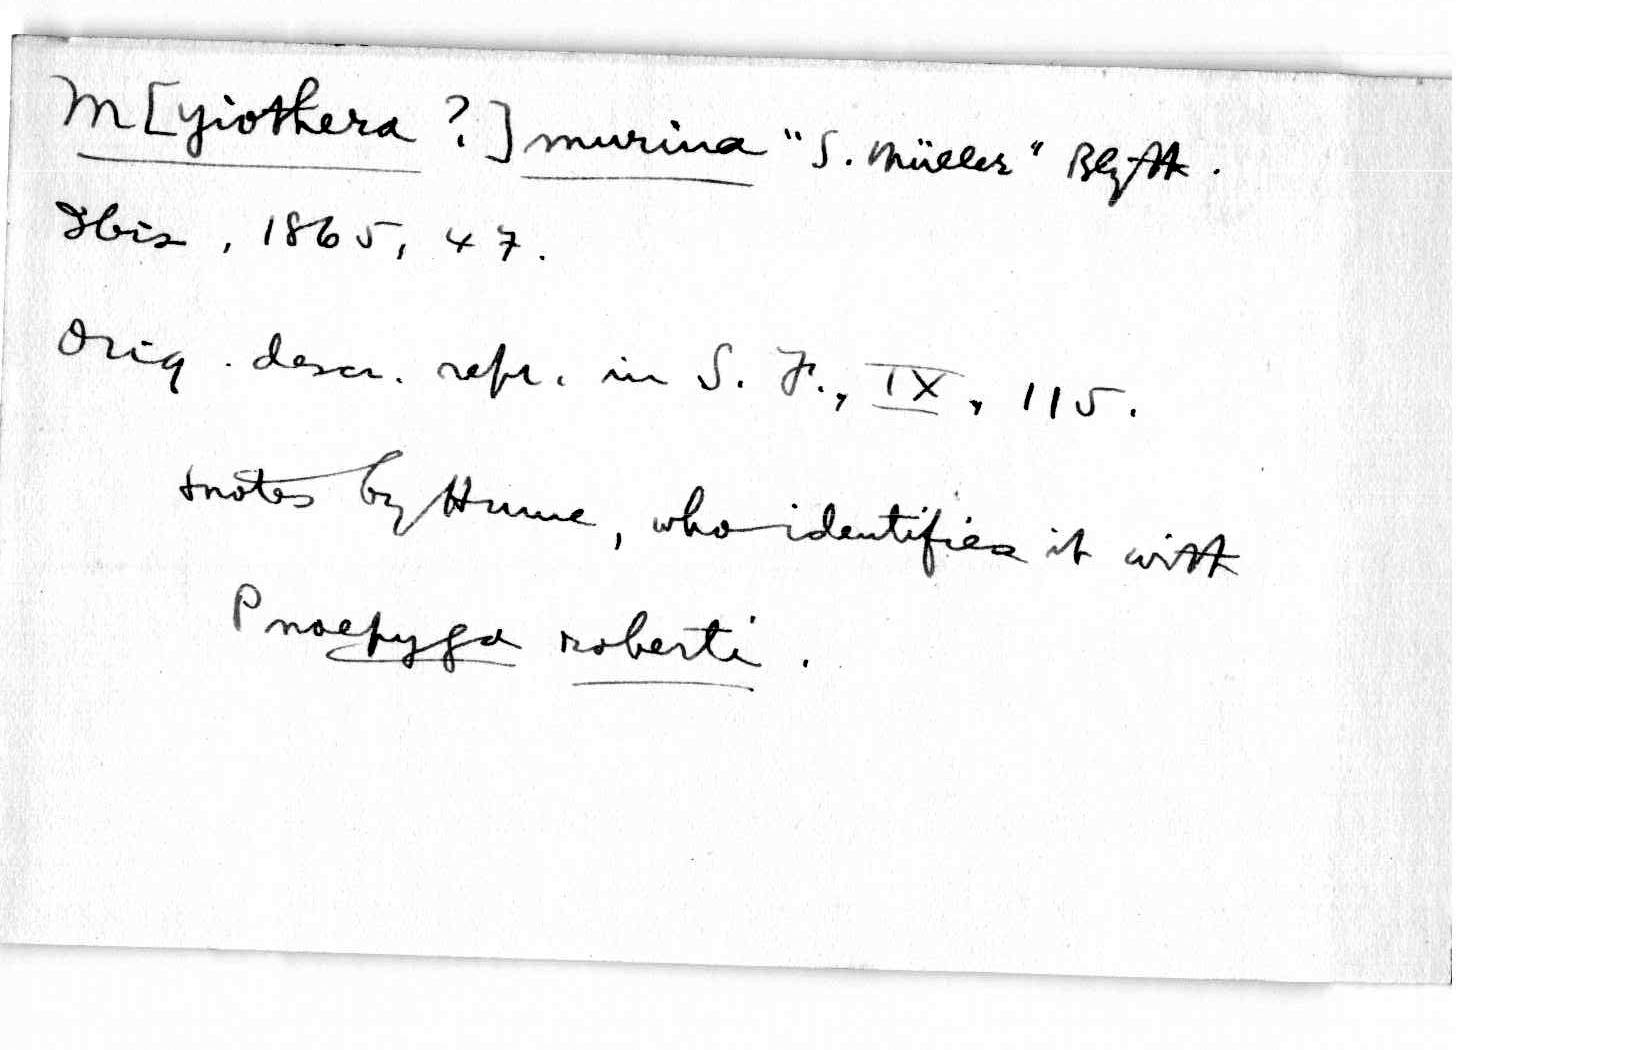 M[yiothera ?] murina "S. Müller" Blyth.
Ibis, 1865, 47.
Orig. descr. repr. in S. F., IX, 115.
+notes by Hume, who identifies it with
Pnoepyga roberti.